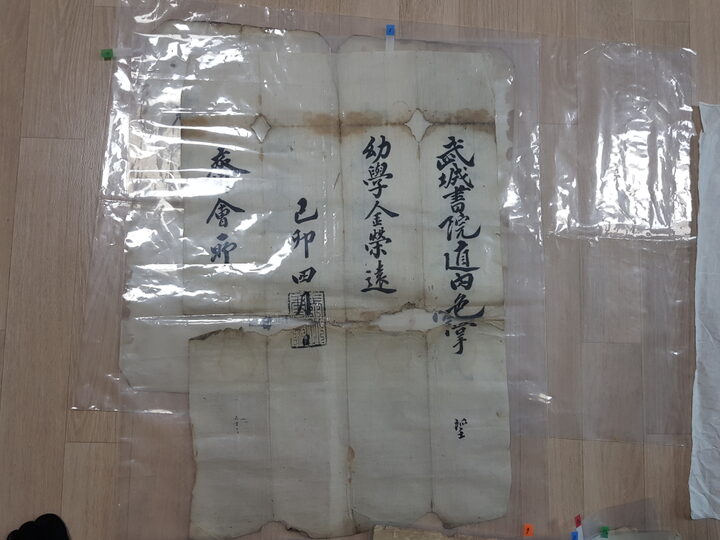 武城書院道內色掌
望
幼學金榮遠
己卯四月日
會所